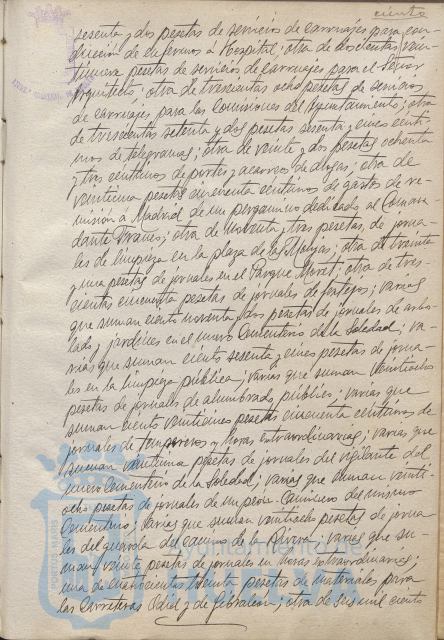 ciento
sesenta y dos pesetas de servicios de carruajes para con-
ducción de enfermos a Hospital; otra de doscientas vein-
tinueve pesetas de servicios de carruajes para el Señor
Arquitecto; otra de trescientas ocho pesetas de servicios
de carruajes para las Comisiones del Ayuntamiento; otra
de trescientas setenta y dos pesetas sesenta y cinco cénti-
mos de telegramas; otra de veinte y dos pesetas ochenta
y tres céntimos de portes y acarreos de drogas; otra de
veintiuna pesetas cincuenta céntimos de gastos de re-
misión a Madrid de un pergamino dedicado al Coman-
dante Franco; otra de noventa y tres pesetas, de jorna-
les de limpieza en la plaza de las Monjas; otra de treinta
y una pesetas de jornales en el Parque Moret; otra de tres-
cientas cincuenta pesetas de jornales de festejos; varias
que suman ciento noventa y dos pesetas de jornales de arbo-
lado y jardines en el nuevo Cementerio de la Soledad; va-
rias que suman ciento sesenta y cinco pesetas de jorna-
les en la limpieza pública; varias que suman veintiocho
pesetas de jornales de alumbrado público; varias que
suman ciento veinticinco pesetas cincuenta céntimos de
jornales de temporeros y horas extraordinarias; varias que
suman veintiuna pesetas de jornales del vigilante del
nuevo Cementerio de la Soledad; varias que suman veinti-
ocho pesetas de jornales de un peón caminero del mismo
Cementerio; varias que suman veintiocho pesetas de jorna-
les del guarda del camino de la Ribera; varias que su-
man veinte pesetas de jornales en horas extraordinarias;
una de cuatrocientas treinta pesetas de materiales para
las Carreteras Odiel y de Gibraleón; otra de seis mil ciento
PORTUS MARIS
Ayuntamiento de
HUELVA